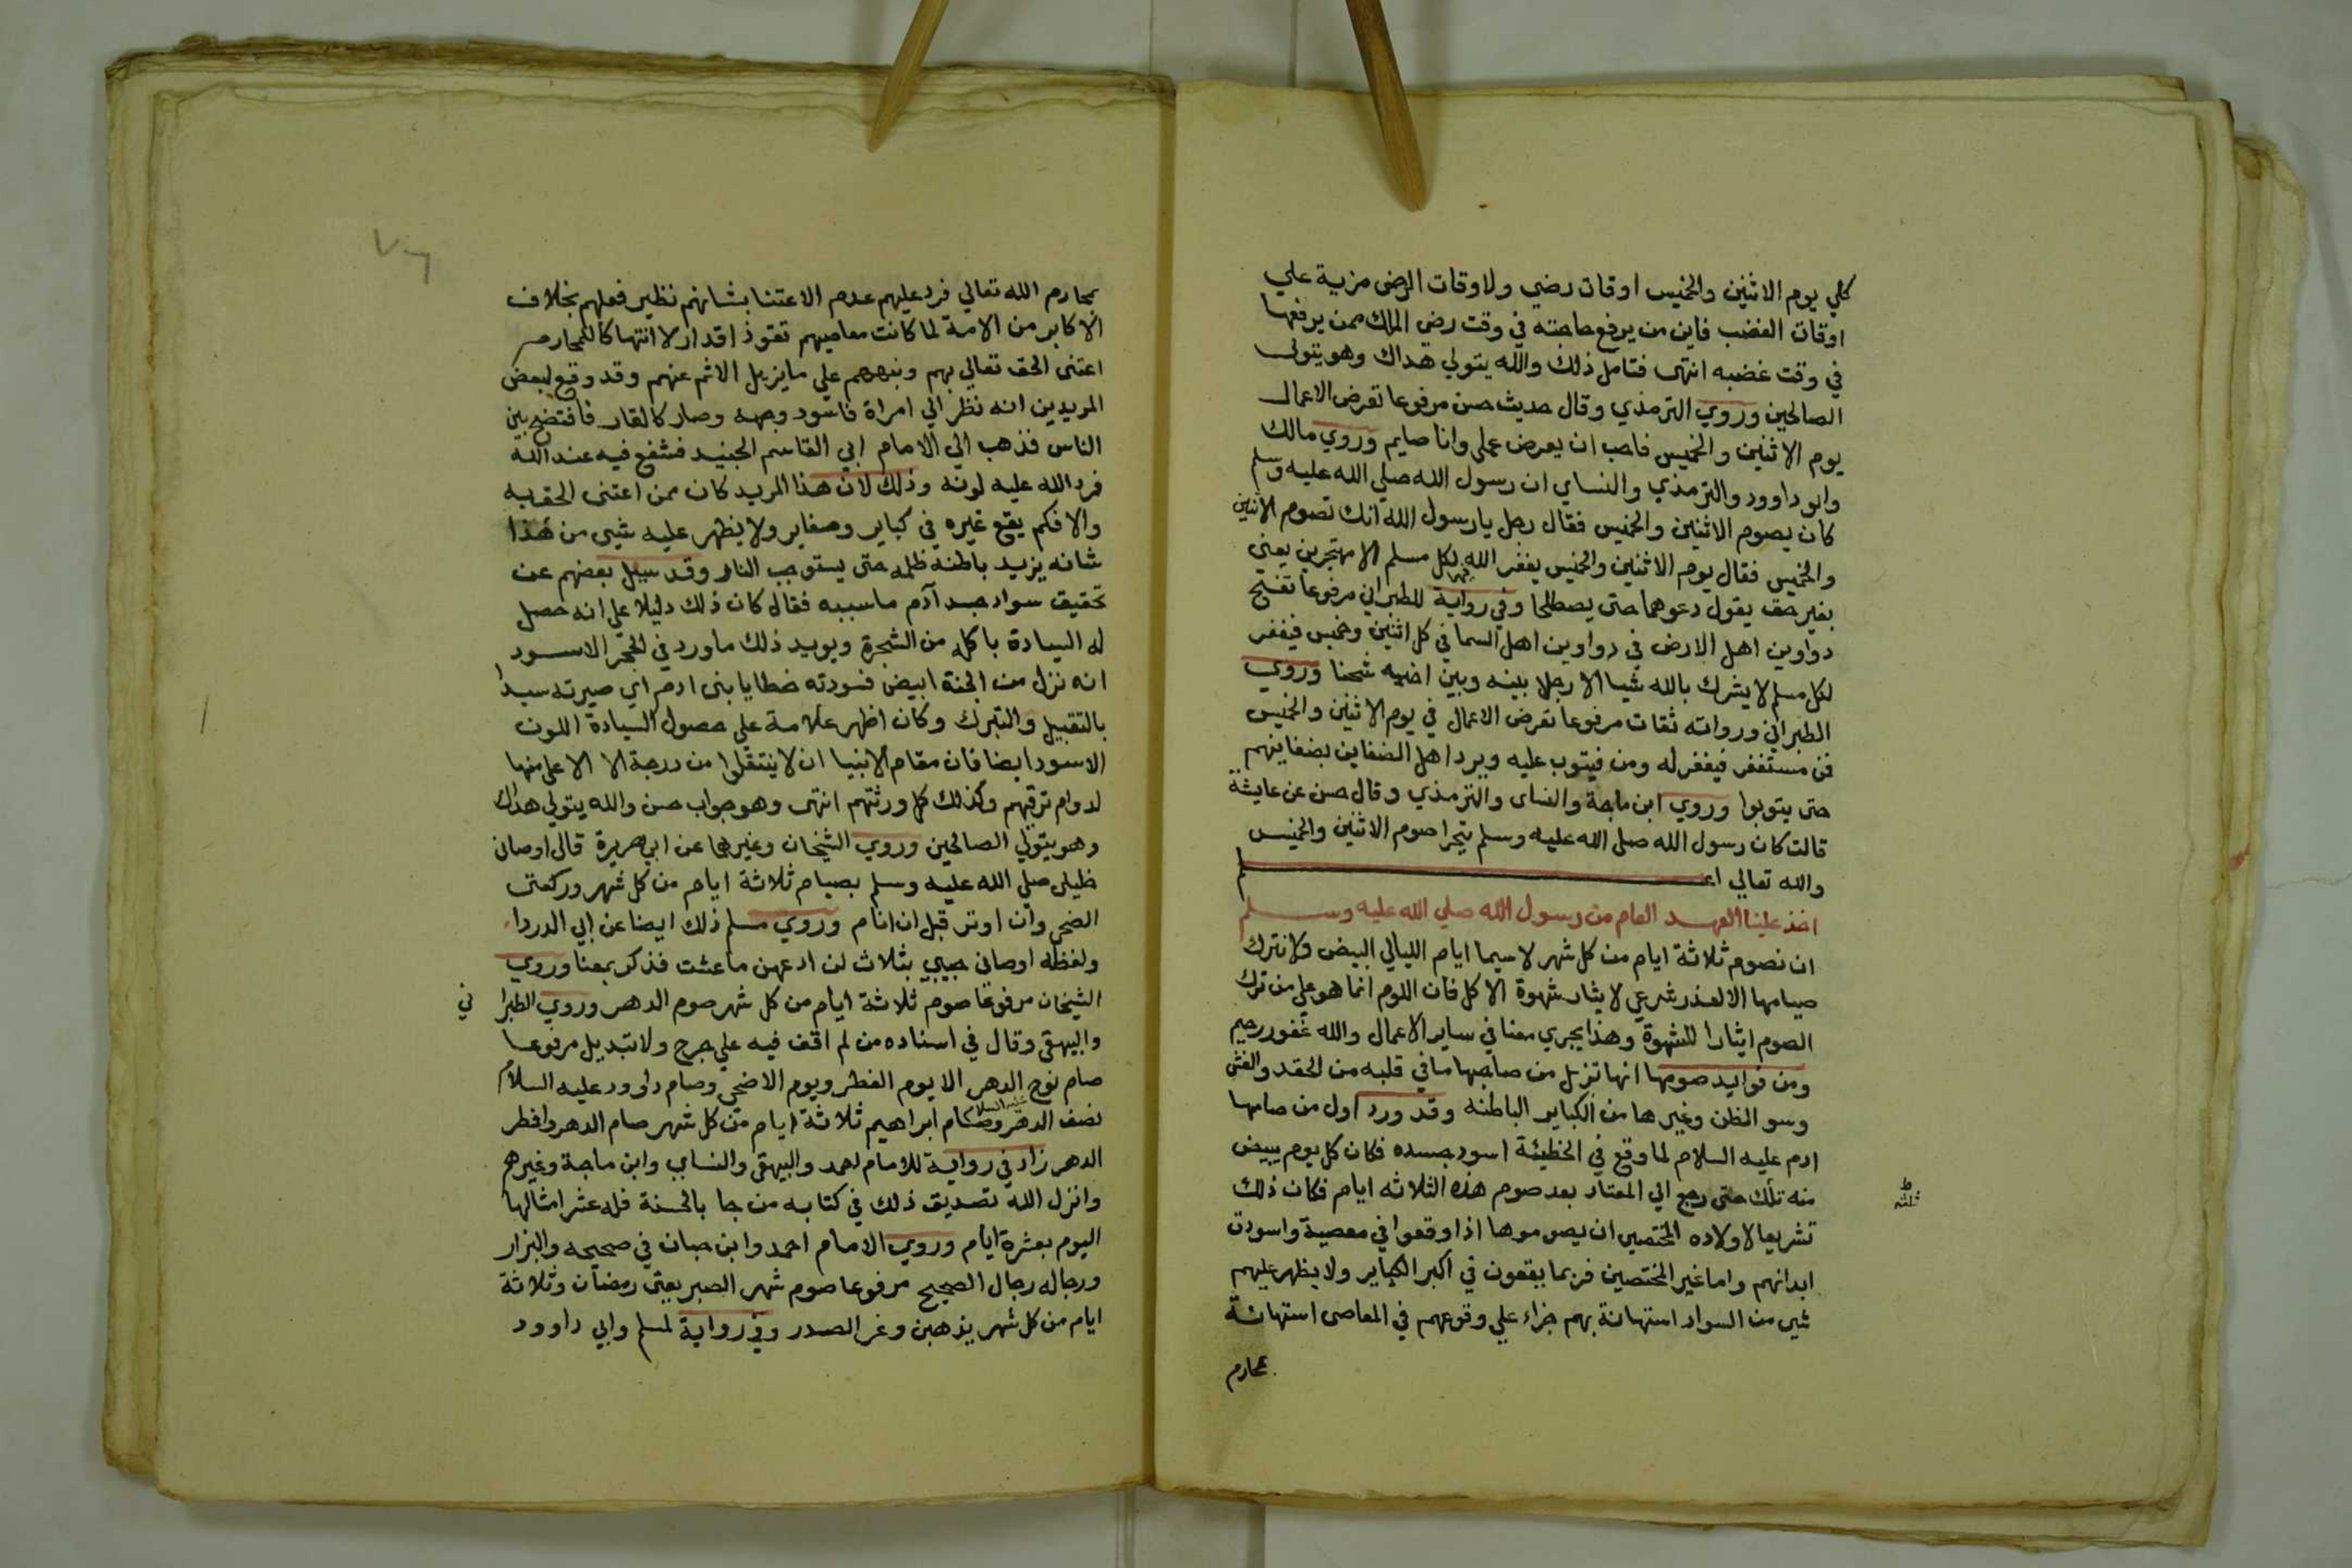 كلي يوم الاثنين والخميس اوقات رضي ولاوقات الرضي مزية علي
اوقات الغضب فاين من يرفع حاجته في وقت رضي الملك ممن يرفعها
في وقت غضبه انتهي فتامل ذلك والله يتولي هداك وهو يتولي
الصالحين وروي الترمذي وقال حديث حسن مرفوعا تعرض الاعمال
يوم الاثنين والخميس فاحب ان يعرض عملي وانا صايم وروي مالك
وابو داوود والترمذي والنساي ان رسول الله صلي الله عليه وسلم
كان يصوم الاثنين والخميس فقال رجل يا رسول الله انك تصوم الاثنين
والخميس فقال يوم الاثنين والخميس يغفر الله لكل مسلم الا مهتجرين يعني
بغير حق يقول دعوهما حتي يصطلحا وفي رواية للطبراني مرفوعا تفسح
دواوين اهل الارض في دواوين اهل السما في كل اثنين وخميس فيغفر
لكل مسلم لا يشرك بالله شيا الا رجلا بينه وبين اخيه شحنا وروي
الطبراني ورواته ثقات مرفوعا تعرض الاعمال في يوم الاثنين والخميس
فمن مستغفر فيغفر له ومن فيتوب عليه ويرد اهل الضغاين بضغاينهم
حتي يتوبوا وروي ابن ماجة والنساي والترمذي وقال حسن عن عايشة
قالت كان رسول الله صلي الله عليه وسلم يتحرا صوم الاثنين والخميس
والله تعالي اعلم
اخذ علينا العهد العام من رسول الله صلي الله عليه وسلم
ان نصوم ثلاثة ايام من كل شهر لاسيما ايام الليالي البيض ولا نترك
صيامها الا لعذر شرعي لا يثار شهوة الاكل فان اللوم انما هو علي من ترك
الصوم ايثارا للشهوة وهذا يجري معنا في ساير الاعمال والله غفور رحيم
ومن فوايد صومها انها تزيل من صاحبها ما في قلبه من الحقد والغش
وسو الظن وغيرها من الكباير الباطنه وقد ورد اول من صامها
ادم عليه السلام لما وقع في الخطيئة اسود جسده فكان كل يوم يبيض
منه تلك حتي رجع الي المعتاد بعد صوم هذه الثلاثه ايام فكان ذلك
ثلثه
تشريعا لاولاده المختصين ان يصوموها اذا وقعوا في معصية واسودت
ابدانهم واما غير المختصين فربما يقعون في اكبر الكباير ولا يظهر عليهم
شي من السواد استهانة بهم جزاء علي وقوعهم في المعاصي استهانة
بمحارم
بمحارم الله تعالي فرد عليهم عدم الاعتنا بشانهم نظير فعلهم بخلاف
الاكابر من الامة لما كانت معاصيهم تقوذ اقدار لا انتهاكا للمحارم
اعتني الحق تعالي بهم ونبههم علي ما يزيل الاثم عنهم وقد وقع لبعض
المريدين انه نظر الي امراة فاسود وجهه وصار كالقار فافتضح بين
الناس فذهب الي الامام ابي القاسم الجنيد فشفع فيه عند الله
فرد الله عليه لونه وذلك لان هذا المريد كان ممن اعتني الحق به
والا فكم يقع غيره في كباير وصغاير ولا يظهر عليه شي من هذا
شانه يزيد باطنه ظلمه حتي يستوجب النار وقد سيل بعضهم عن
تحقيق سواد جسد آدم ما سببه فقال كان ذلك دليلا علي انه حصل
له السيادة باكله من الشجرة ويويد ذلك ما ورد في الحجر الاسود
انه نزل من الجنة ابيض فسودته خطايا بني ادم اي صيرته سيدا
بالتقبيل والتبرك وكان اظهر علامة علي حصول السيادة اللون
الاسود ايضا فان مقام الانبيا ان لا ينتقلوا من درجة الا الاعلي منها
لدوام ترقيهم وكذلك كل ورثتهم انتهي وهو جواب حسن والله يتولي هداك
وهو يتولي الصالحين وروي الشيخان وغيرها عن ابي هريرة قال اوصاني
خليلي صلي الله عليه وسلم بصيام ثلاثة ايام من كل شهر وركعتي
الضحي وان اوتر قبل ان انام وروي مسلم ذلك ايضا عن ابي الدرداء
ولفظه اوصاني حبيبي بثلاث لن ادعهن ما عشت فذكر بمعنا وروي
الشيخان مرفوعا صوم ثلاثة ايام من كل شهر صوم الدهر وروي الطبرا ني
والبيهقي وقال في اسناده من لم اقف فيه علي جرح ولا تبديل مرفوعا
صام نوح الدهر الا يوم الفطر ويوم الاضحي وصام داوود عليه السلام
نصف الدهر وصام ابراهيم عليه السلام ثلاثة ايام من كل شهر صام الدهر وافطر
الدهر زاد في رواية للامام احمد والبيهقي والنسايي وابن ماجة وغيرهم
وانزل الله تصديق ذلك في كتابه من جا بالحسنة فله عشر امثالها
اليوم بعشرة ايام وروي الامام احمد وابن حبان في صحيحه والبزار
ورجاله رجال الصحيح مرفوعا صوم شهر الصبر يعني رمضان وثلاثة
ايام من كل شهر يذهبن وغر الصدر وفي رواية لمسلم وابي داوود